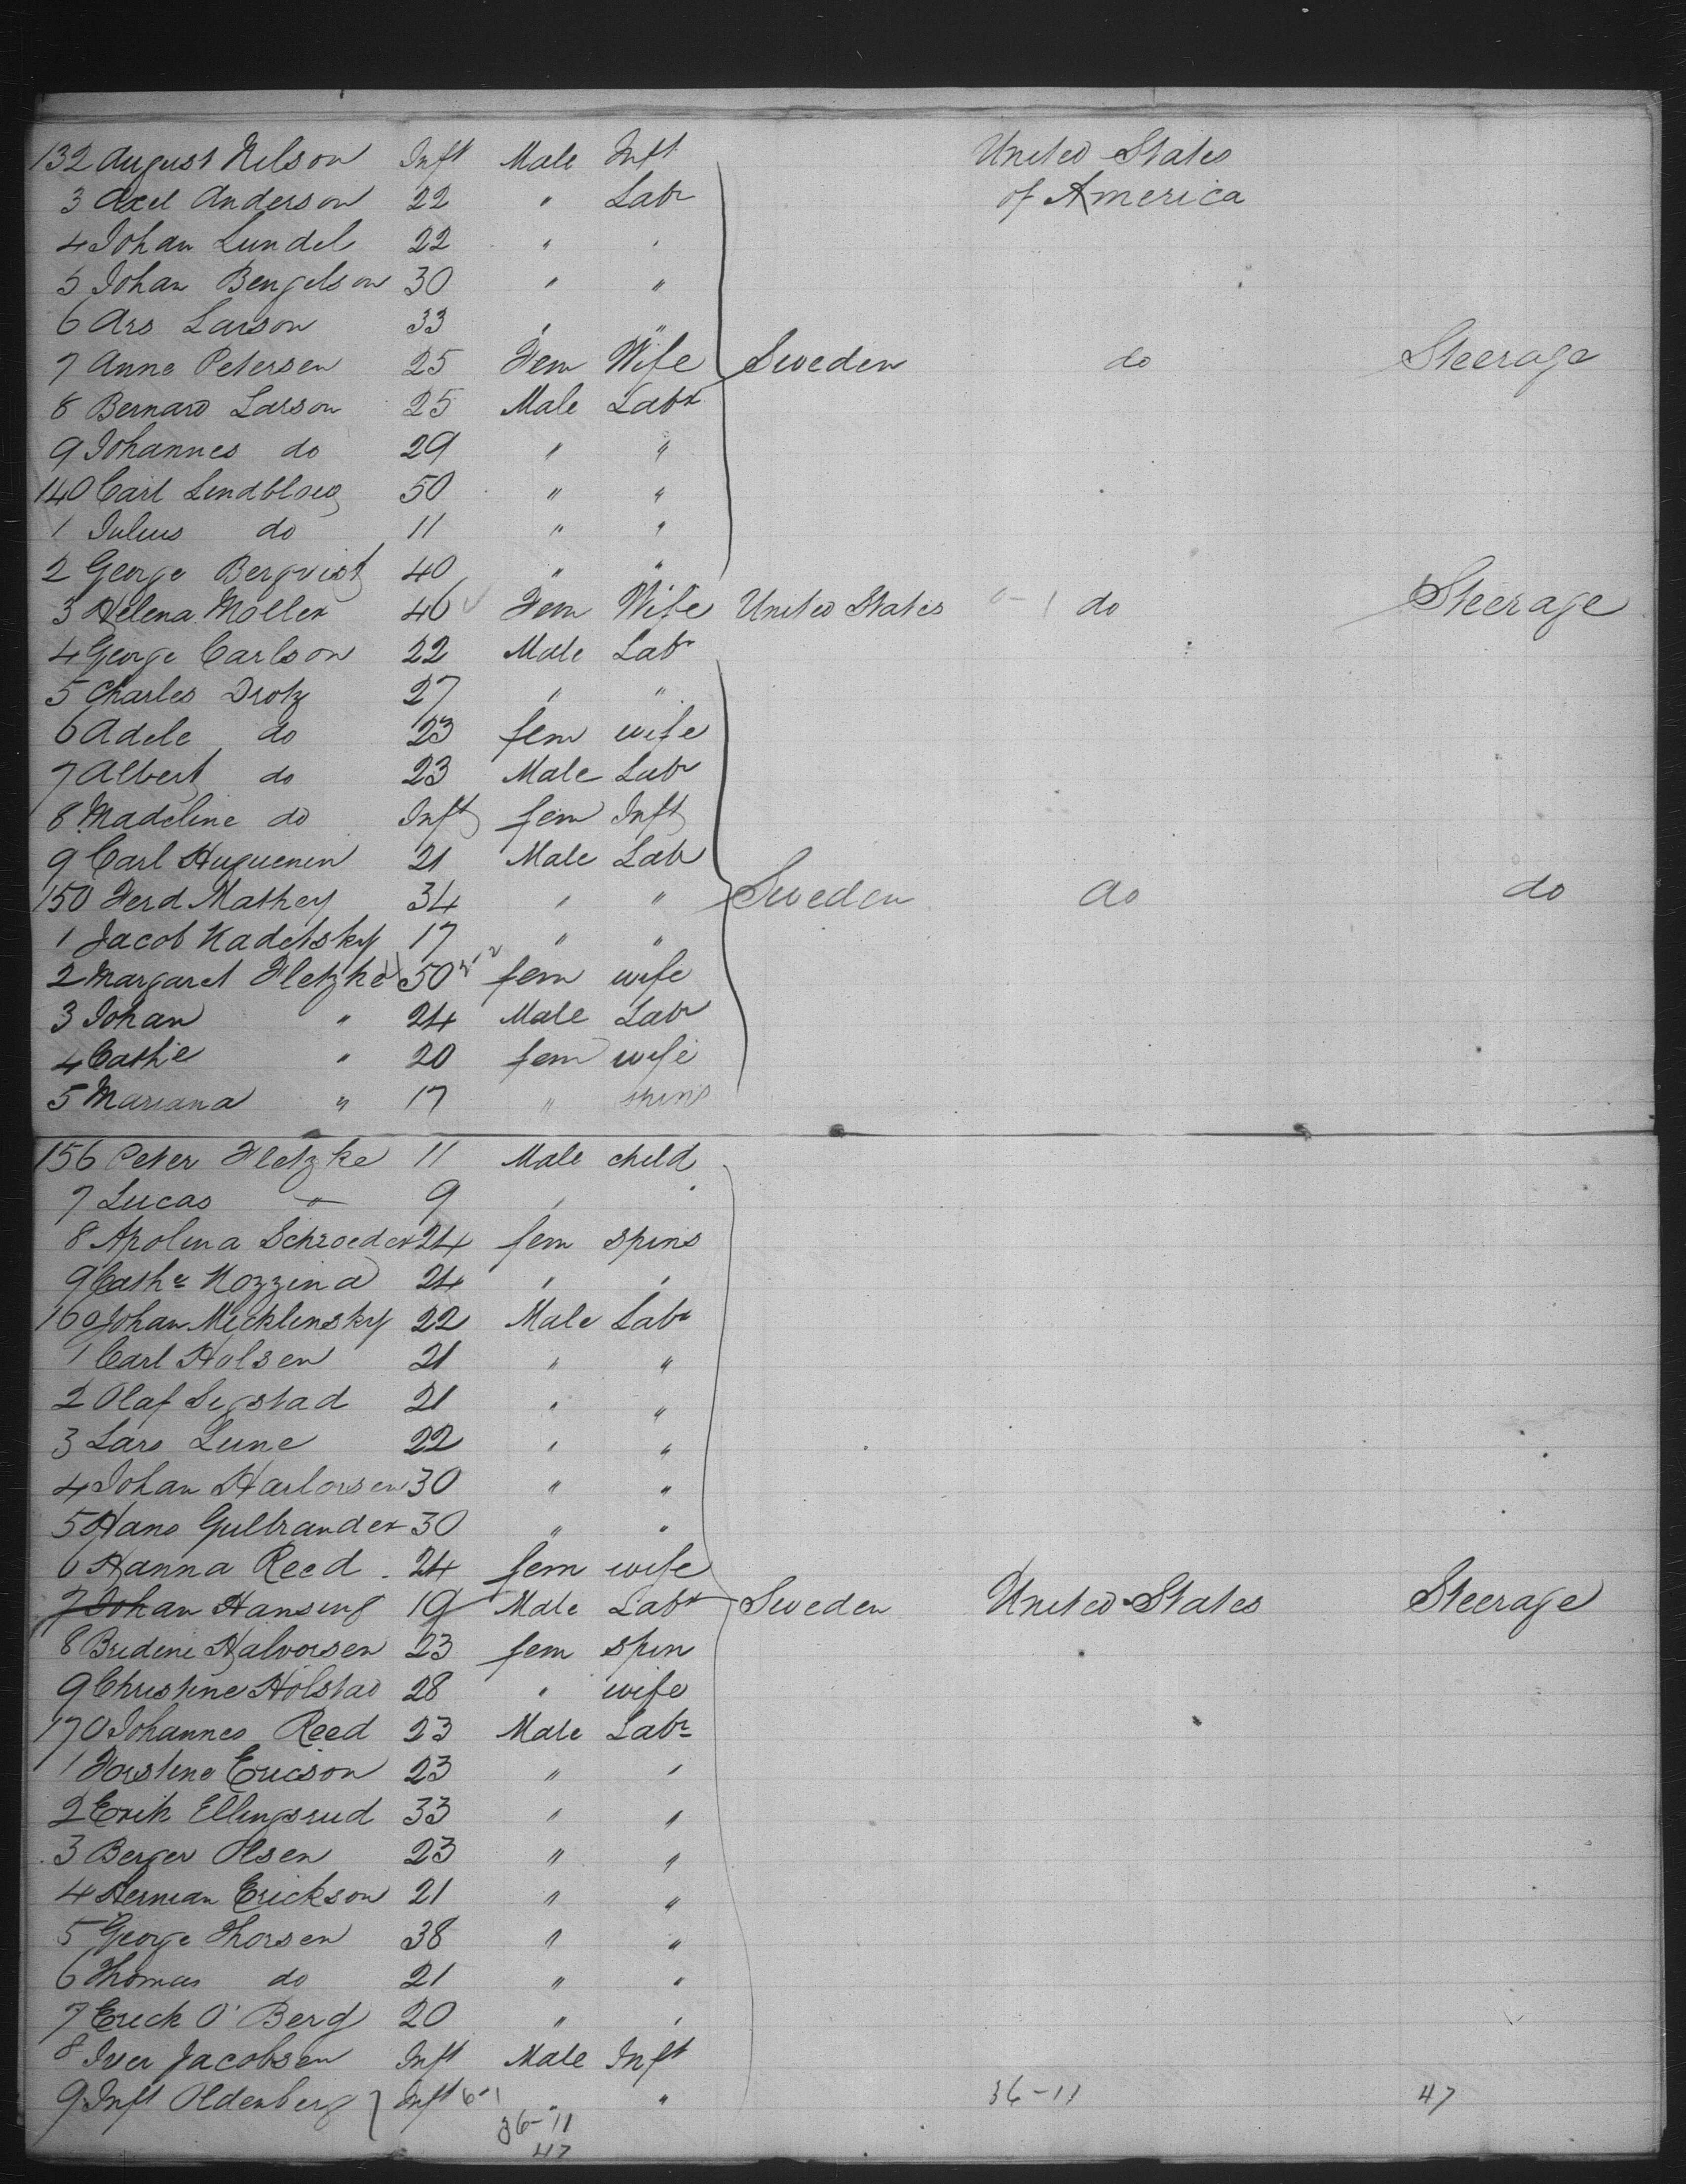 132 August Nelson Inft Male Inft United States
3 Axel Anderson 22 " Labr of America
4 Johan Lundel 22 " "
5 Johan Bengelson 30 " "
6 Ars Larson 33 " "
7 Anne Petersen 25 Fem Wife Sweden do Steerage
8 Bernard Larson 25 Male Labr
9 Johannes do 29 " "
140 Carl Lindbloeg 50 " "
1 Julius do 11 " "
2 George Bergvist 40 " "
3 Helena Moller 46 Fem Wife United States 0-1 do Steerage
4 George Carlson 22 Male Labr
5 Charles Drotz 27 " "
6 Adele do 23 fem wife
7 Albert do 23 Male Labr
8 Madeline do Inft fem Inft
9 Carl Huguenin 21 Male Labr
150 Ferd Mathey 34 " " Sweden do do
1 Jacob Kadetsky 17 " "
2 Margaret Fletzke 50 fem wife
3 Johan " 24 Male Labr
4 Cathe " 20 fem wife
5 Mariana " 17 " spins
156 Peter Fletzke 11 Male child
7 Lucas " 9 " "
8 Apolina Schroeder 24 fem spins
9 Cathe Kozzina 24 " "
160 Johan Mecklinsky 22 Male Labr
1 Carl Holsen 21 " "
2 Olaf Sigstad 21 " "
3 Lars Lune 22 " "
4 Johan Harlorsen 30 " "
5 Hans Gulbrander 30 " "
6 Hanna Reed 24 fem wife
7 Johan Hansing 19 Male Labr Sweden United States Steerage
8 Bredine Halvorsen 23 fem spin
9 Christine Holstad 28 " wife
170 Johannes Reed 23 Male Labr
1 Torstine Ericson 23 " "
2 Erik Ellingsrud 33 " "
3 Berger Olsen 23 " "
4 Herman Erickson 21 " "
5 George Thorsen 38 " "
6 Thomas do 21 " "
7 Erick O'Berg 20 " "
8 Iver Jacobsen Inft Male Inft
9 Inft Oldenberg Inft 6-1 " " 36-11 47
36-11
47